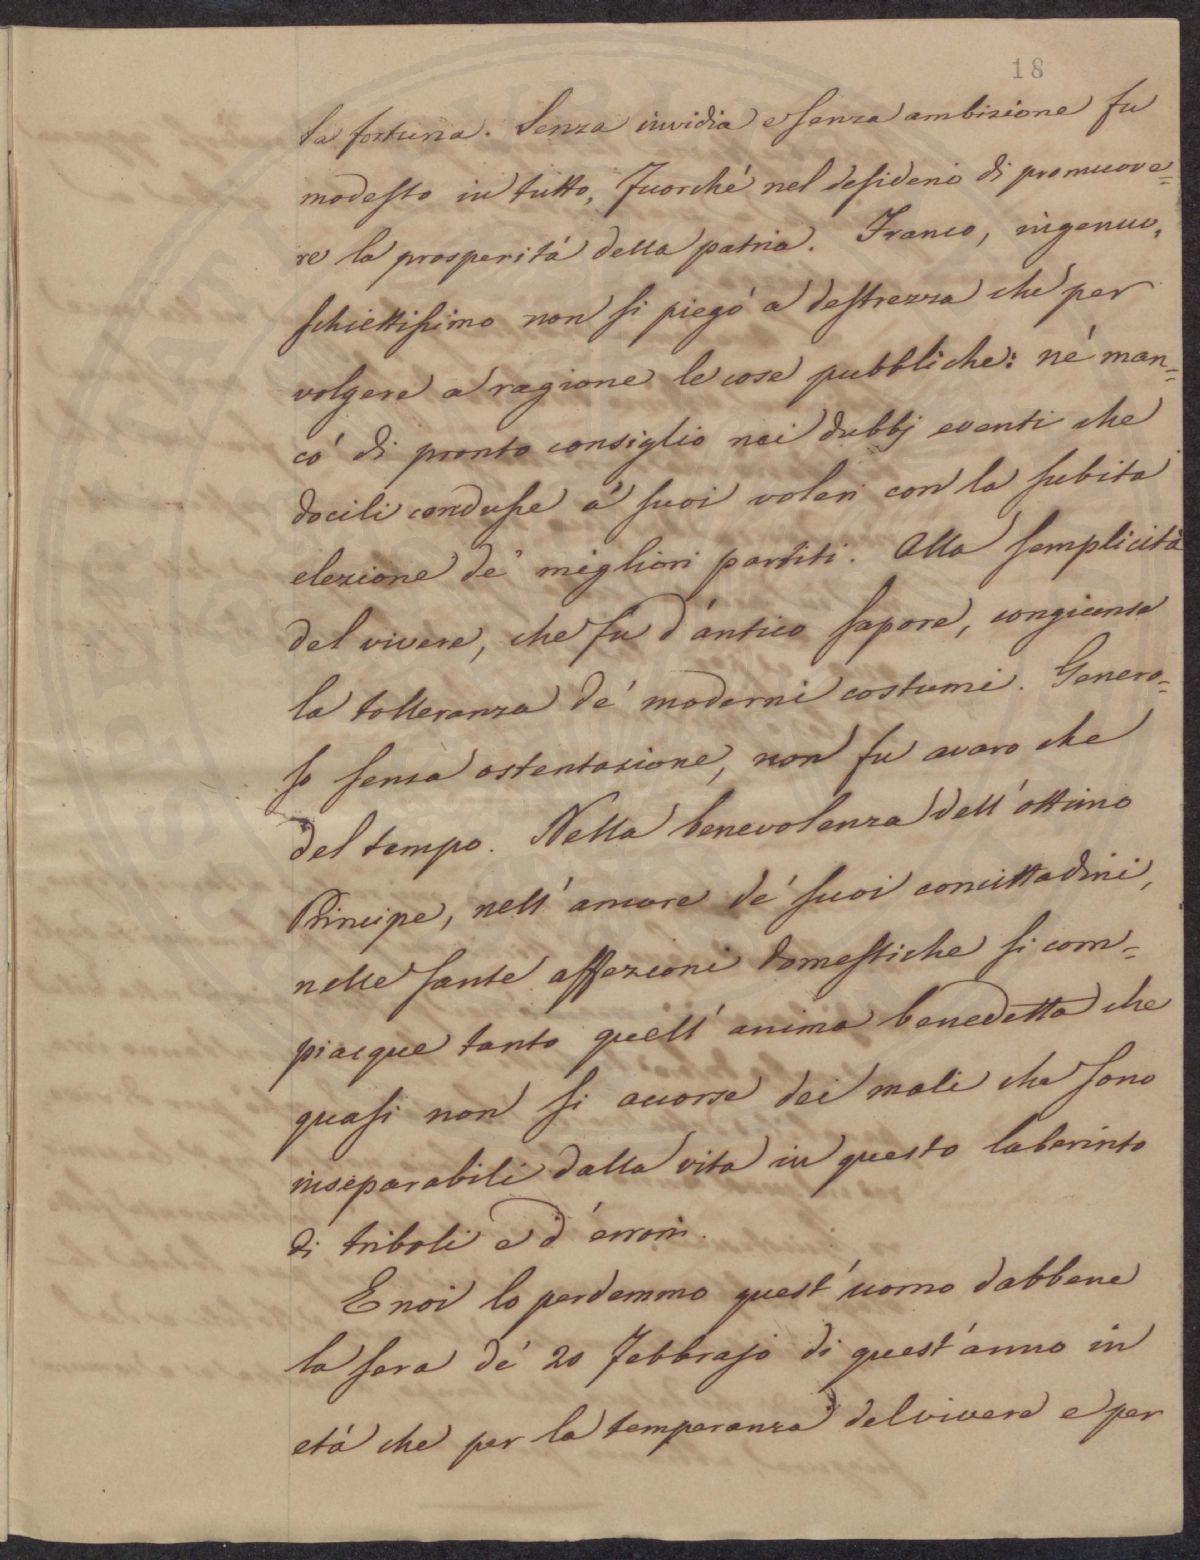 18
la fortuna. Senza invidia e senza ambizione fu
modesto in tutto, fuorché nel desiderio di promuove=
re la prosperitá della patria. Franco, ingenuo,
schiettissimo non si piegó a destrezza che per
volgere a ragione le cose pubbliche: né man=
có di pronto consiglio nei dubbj eventi che
docili condusse a' suoi voleri con la subita
elezione de' migliori partiti. Alla semplicitá
del vivere, che fu d'antico sapore, congiunse
la tolleranza de' moderni costumi. Genero=
so senza ostentazione, non fu avaro che
del tempo. Nella benevolenza dell'ottimo
Principe, nell'amore de' suoi concittadini,
nelle sante affezioni domestiche si com=
piacque tanto quell'anima benedetta che
quasi non si accorse dei mali che sono
inseparabili dalla vita in questo laberinto
di triboli e d'errori.
E noi lo perdemmo quest'uomo dabbene
la sera de' 20 Febbrajo di quest'anno in
etá che per la temperanza del vivere e per